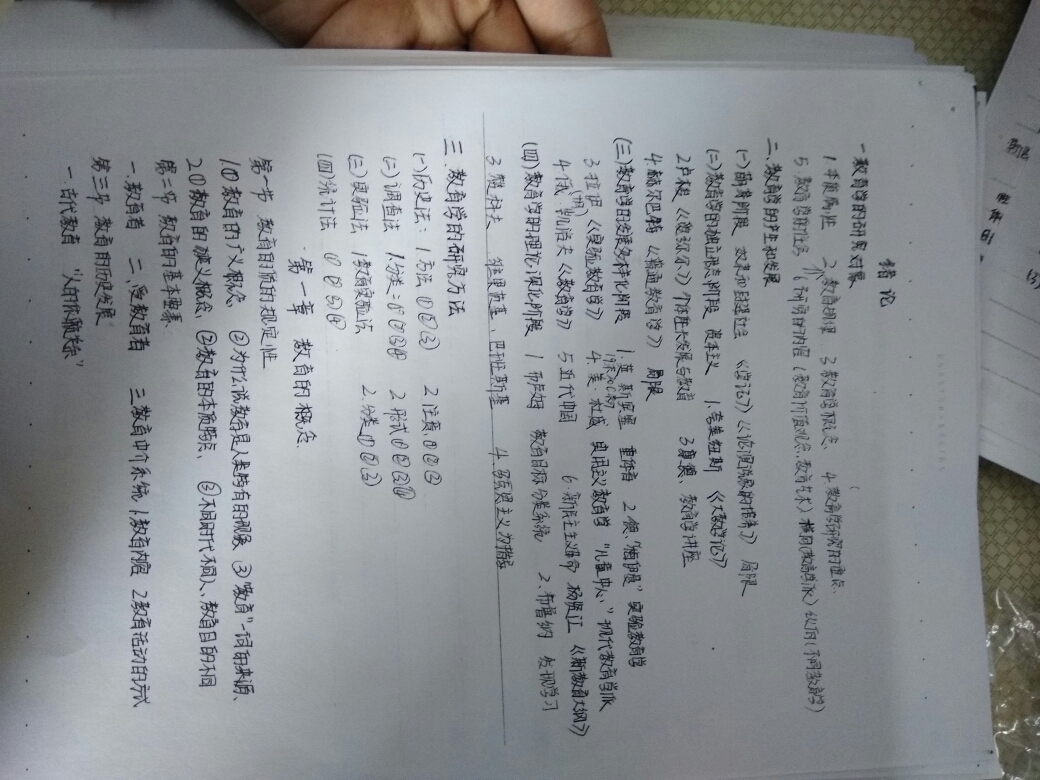 绪论
一 教育学的研究对象
1 本质属性 2 教育规律 3 教育学概念、 4 教育学研究的重点、
5 教育学的任务 不同的内容（教育价值观念、教育艺术） 横向（教育学派） 纵向（不同教育学）
二、教育学的产生和发展
（一）萌芽阶段 《学记》 《论演说家的培养》 局限
（二）教育学的独立形态阶段 资本主义 1. 夸美纽斯 《大教学论》
2 卢梭 《爱弥尔》 3 康德、教育学讲座
4. 赫尔巴特 《普通教育学》 局限
（三）教育学的发展多样化阶段 1. 英 斯宾塞 2 德、 实验教育学
3 拉伊 《实验教育学》 4. 美. 杜威 实用主义教育学 "儿童中心" 现代教育学派
4. 俄 凯洛夫 《教育学》 5 近代中国 6. 新民主主义革命 杨贤江 《新教育大纲》
（四）教育学的理论深化阶段 1 布卢姆 教育目标分类系统 2. 布鲁纳 发现学习
3 赞科夫 维果茨基、巴班斯基 4. 马克思主义为指导
三. 教育学的研究方法
（一）历史法： 1 方法 ①②③ 2 注意. ①②③
（二）调查法 1. 分类：①②③④ 2 形式 ①②③④
（三）实验法 1 教育实验法、 2. 分类 ①②③
（四）统计法 ①②③④
第一章 教育的概念
第一节 教育的质的规定性
1① 教育的广义概念 ② 为什么说教育是人类特有的现象 ③ "教育"一词的来源、
2① 教育的狭义概念 ② 教育的本质特点、 ③ 不同时代不同人、教育目的不同
第二节 教育的基本要素
一. 教育者 二、受教育者 三 教育中介系统 1. 教育内容 2 教育活动的方式
第三节 教育的历史发展
一 古代教育 "人的依赖关系"